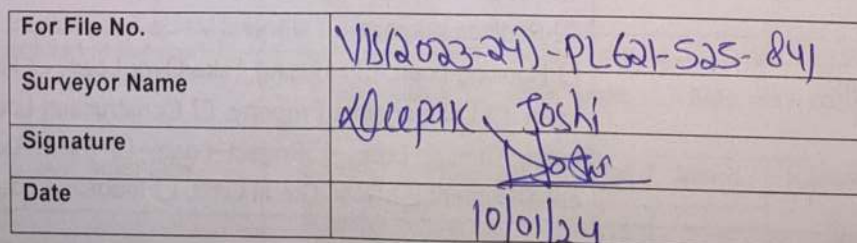 For File No. VIS(2023-24)-PL621-525-841
Surveyor Name Deepak Joshi
Signature
Date 10/01/24